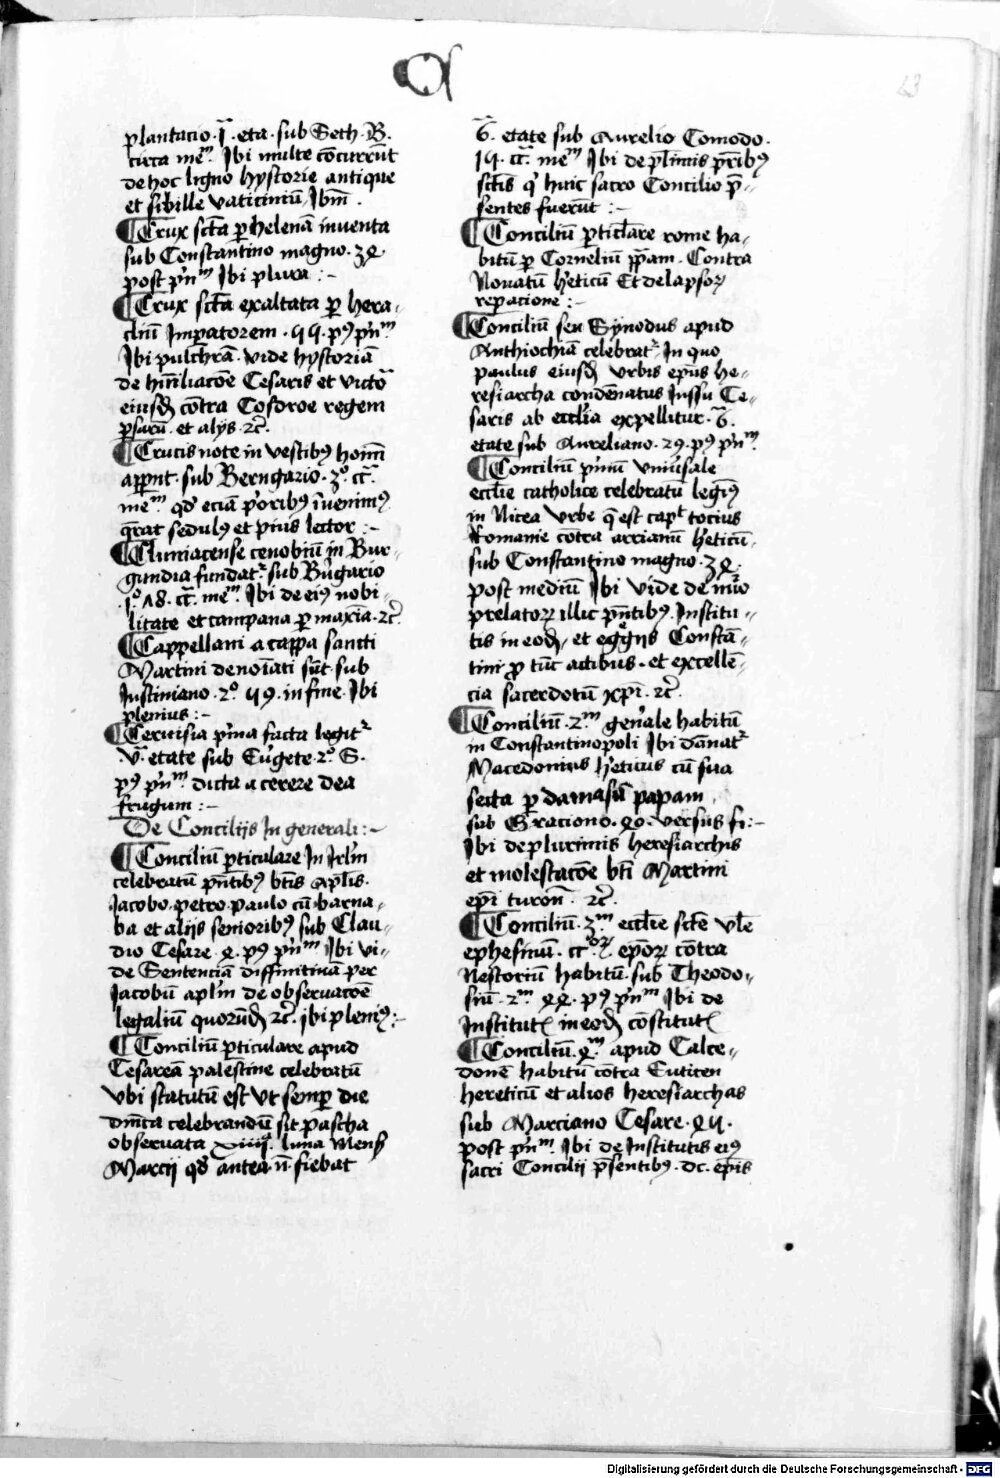 C
63
plantatio · i̅ · eta · sub Seth · B ·
circa meᵐ · Ibi multe co̅currūt
de hoc ligno hystorie antique
et sibille vaticiniū · Ibm̅ ·
¶ Crux scta̅ ꝑ helena̅ inventa
sub Constantino magno · 3ꝝ ·
post p'nᵐ Ibi plura :-
¶ Crux scta̅ exaltata ꝑ hera-
cliū Imꝑatorem · 55 · pꝰ p'nᵐ
Ibi pulchra̅ · vide hystoria̅
de hūiliaco̅e Cesaris et victo̅
eiusdꝫ co̅tra Cosdroe regem
ꝑsarū · et alijs · ⁊c̅ ·
¶ Crucis note in vestibꝰ hoim̅
aꝑpnt · sub Berngario · 3° · cr̅ ·
meᵐ · qd' ecia̅ p'oribꝰ i̅venimꝰ
q̅rat sedulꝰ et pius lector :-
¶ Cluniacense cenobiū in Bur-
gundia fundatʳ sub Bu̅gario
· i° · 18 · cr̅ · meᵐ · Ibi de eiꝰ nobi-
litate et campana ꝑ maxi̅a · ⁊c̅
¶ Cappellani a cappa sancti
Martini denoi̅ati su̅t · sub
Justiniano · 2° · 59 · in fine · Ibi
plenius :-
¶ Cervisia p'ma facta legitʳ
· v̅ · etate sub Eu̅gete · 2° · S ·
pꝰ p'nᵐ · dicta a cerere dea
frugum :-
De Concilijs In generali :-
¶ Conciliū ꝑticulare In Irl̅m
celebratū pn̅tibꝰ bt̅is apl̅is ·
Jacobo · petro · paulo cū barna-
ba et alijs senioribꝰ sub Clau-
dio Cesare · ꝝ · pꝰ p'nᵐ Ibi vi-
de Sentencia̅ diffinitiua̅ per
Jacobū apl̅m de obseruaco̅e
legaliū quorūdꝫ ⁊c̅ · ibi pleniꝰ :-
¶ Conciliū ꝑticulare apud
Cesarea̅ palestine celebratū
vbi statutū est vt semꝑ die
dm̅ca celebrandū sit pascha
obseruata xiiijª · luna mens̅
Marcij qd' antea n̅ fiebat
6̅ · etate sub Aurelio Comodo ·
15 · cr̅ · meᵐ Ibi de pl'imis pr̅ibꝰ
sct̅is q' huic sacro Concilio p̅-
sentes fuerūt :-
¶ Conciliū ꝑticl̅are rome ha-
bitū ꝑ Corneliū pp̅am · Contra
Nouatū h'eticū Et de lapsoꝝ
reparacione :-
¶ Conciliū seu Synodus apud
Anthiochia̅ celebratʳ In quo
paulus eiusdꝫ vrbis ep̅us he-
resiarcha conde̅natus Jussu Ce-
saris ab eccl̅ia expellitur · 6̅ ·
etate sub Aureliano · 29 · pꝰ p'nᵐ
¶ Conciliū p'mū vniu'sale
eccl̅ie catholice celebratū legi̅ꝰ
in Nicea vrbe q̅ est capᵗ tocius
Romanie co̅tra arrianū h'eticū ·
sub Constantino magno · 3ꝝ
post mediū Ibi vide de nu̅o
prelatoꝝ illic pn̅tibꝰ · Institu-
tis in eodꝫ · et egregijs Consta̅-
tini p̲ tūc actibus · et excelle̅-
cia sacerdotū xp̅i · ⁊c̅ ·
¶ Conciliū · 2ᵐ gen'ale habitū
in Constantinopoli Ibi da̅natʳ
Macedonius h'eticus cū sua
secta ꝑ damasū papam
sub Graciano · ꝝ0 · versus fi :-
Ibi de plurimis heresiarchis
et molestaco̅e bt̅i Martini
ep̅i turon̅ · ⁊c̅ ·
¶ Conciliū · 3ᵐ eccl̅ie sct̅e vl̅e
ephesinū · ccᵒʳꝝ ep̅oꝝ co̅tra
Nestoriū habitū · sub Theodo-
siū · 2ᵐ · ꝝꝝ · pꝰ p'nᵐ Ibi de
Institut̅ in eodꝫ co̅stitut̅
¶ Conciliū · ꝝᵐ apud Calce-
done̅ habitū co̅tra Eutitcen
hereticū et alios heresiarchas
sub Marciano Cesare · ꝝ5 ·
post p'nᵐ · Ibi de Institutis eiꝰ
sacri Concilii p̅sentibꝰ · dc · ep̅is
Digitalisierung gefördert durch die Deutsche Forschungsgemeinschaft - DFG